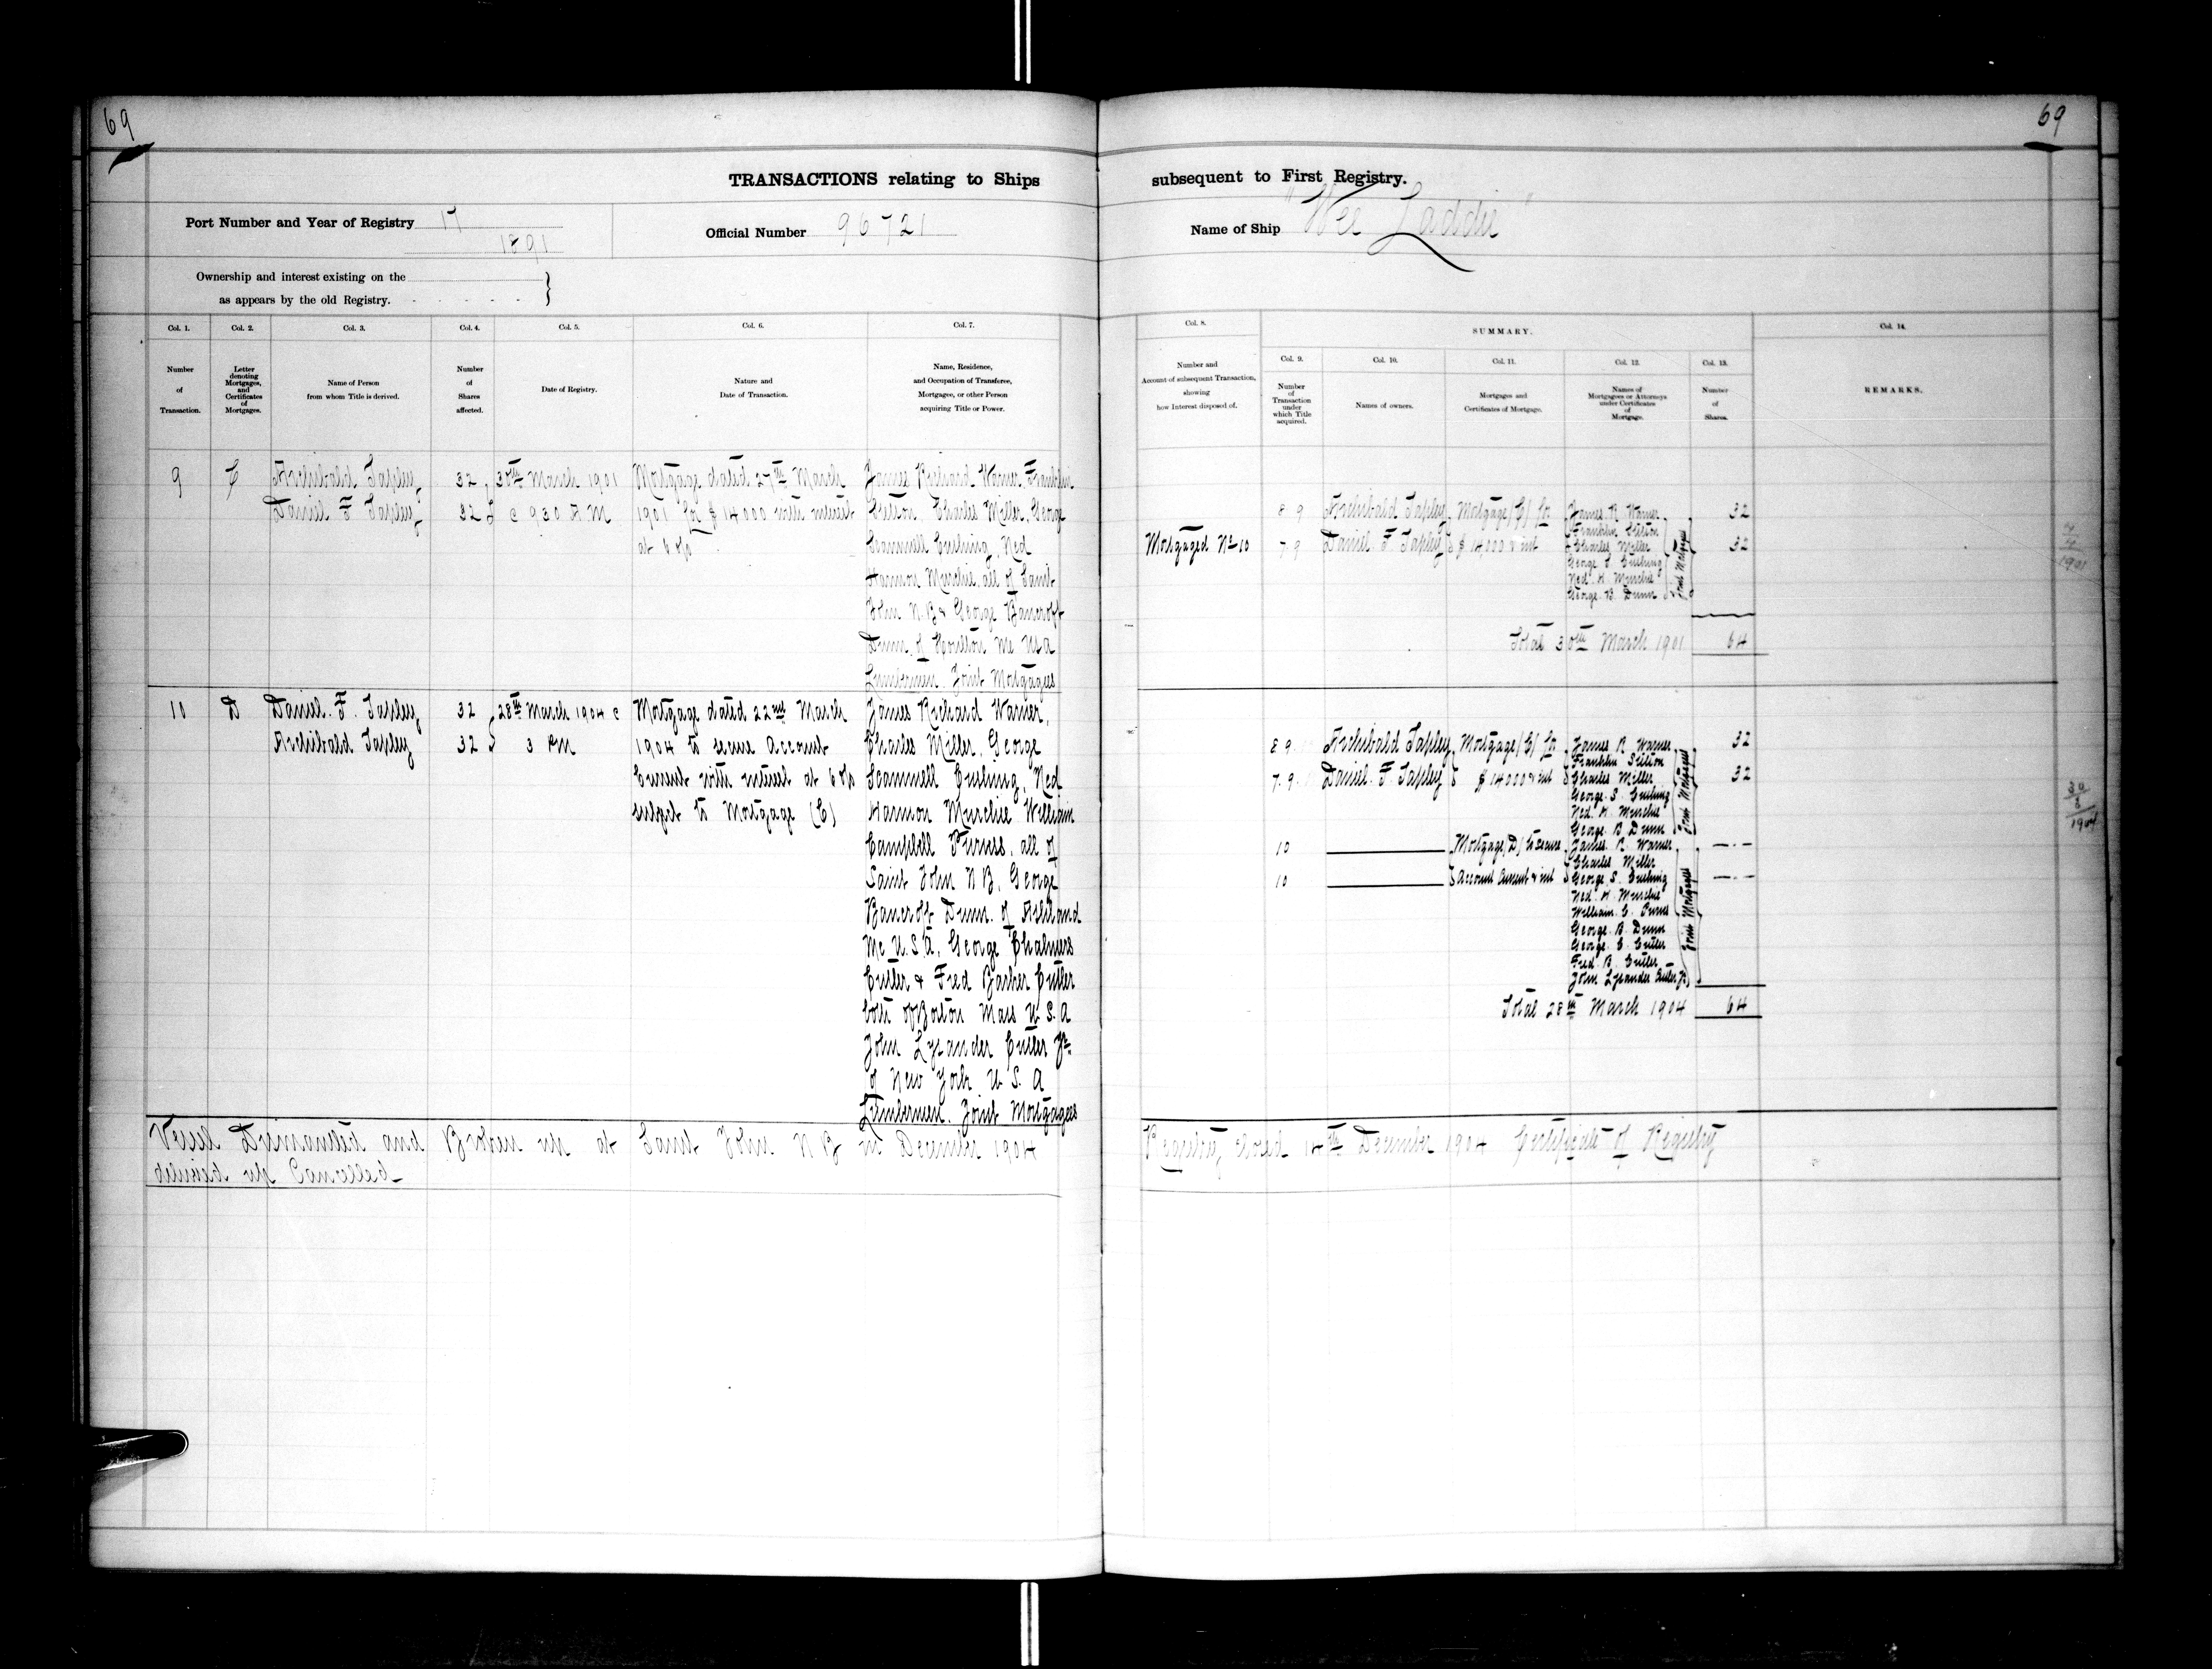 69
69
TRANSACTIONS relating to Ships subsequent to First Registry.
Port Number and Year of Registry 17
1891
Official Number 96721
Name of Ship "Wee Laddie"
Ownership and interest existing on the
as appears by the old Registry.
Col. 1.
Number
of
Transaction.
Col. 2.
Letter
denoting
Mortgages,
and
Certificates
of
Mortgages.
Col. 3.
Name of Person
from whom Title is derived.
Col. 4.
Number
of
Shares
affected.
Col. 5.
Date of Registry.
Col. 6.
Nature and
Date of Transaction.
Col. 7.
Name, Residence,
and Occupation of Transferee,
Mortgagee, or other Person
acquiring Title or Power.
Col. 8.
Number and
Account of subsequent Transaction,
showing
how Interest disposed of.
SUMMARY.
Col. 9.
Number
of
Transaction
under
which Title
acquired.
Col. 10.
Names of owners.
Col. 11.
Mortgages and
Certificates of Mortgage.
Col. 12.
Names of
Mortgagees or Attorneys
under Certificates
of
Mortgage.
Col. 13.
Number
of
Shares.
Col. 14.
REMARKS.
9
C
Archibald Tapley
Daniel F Tapley
32
32
30th March 1901
@ 9 30 A M
Mortgage dated 27th March
1901 for $14000 with interest
at 6 o/o
James Richard Warner, Franklin
Stetson, Charles Miller, George
Scammell Cushing, Ned
Harmon Murchie, all of Saint
John N.B & George Bancroft
Dunn of Houlton Me USA
Lumbermen Joint Mortgagees
Mortgaged No 10
8 9 Archibald Tapley
7 9 Daniel F Tapley
Mortgage (C) for
$14000 & int
James R Warner
Franklin Stetson
Charles Miller
George S Cushing
Ned H Murchie
George B Dunn
Joint Mortgagees
32
32
Total 30th March 1901 64
4/4/1901
10
D
Daniel F. Tapley
Archibald Tapley
32
32
28th March 1904 @
3 PM
Mortgage dated 22nd March
1904 to secure Account
Current with interest at 6 o/o
subject to Mortgage (C)
James Richard Warner,
Charles Miller, George
Scammell Cushing, Ned
Harmon Murchie William
Campbell Purves, all of
Saint John N B, George
Bancroft Dunn. of Ashland
Me U.S.A, George Chalmers
Cutler & Fred Barker Cutler
both of Boston Mass U.S.A
John Lysander Cutler Jr.
of New York U. S. A
Lumbermen. Joint Mortgagees
8 9 Archibald Tapley
7. 9. Daniel F. Tapley
Mortgage (C) for
$14000 & int
James R Warner
Franklin Stetson
Charles Miller
George S Cushing
Ned H Murchie
George B Dunn
Joint Mortgagees
32
32
10
10
Mortgage (D) to secure
Account Current & int
James R Warner
Charles Miller
George S. Cushing
Ned H Murchie
William C Purves
George B Dunn
George C Cutler
Fred B Cutler
John Lysander Cutler Jr
Joint Mortgagees
Total 28th March 1904 64
30/3/1904
Vessel Dismantled and Broken up at Saint John N B in December 1904 Registry closed 14th December 1904 Certificate of Registry
delivered up Cancelled